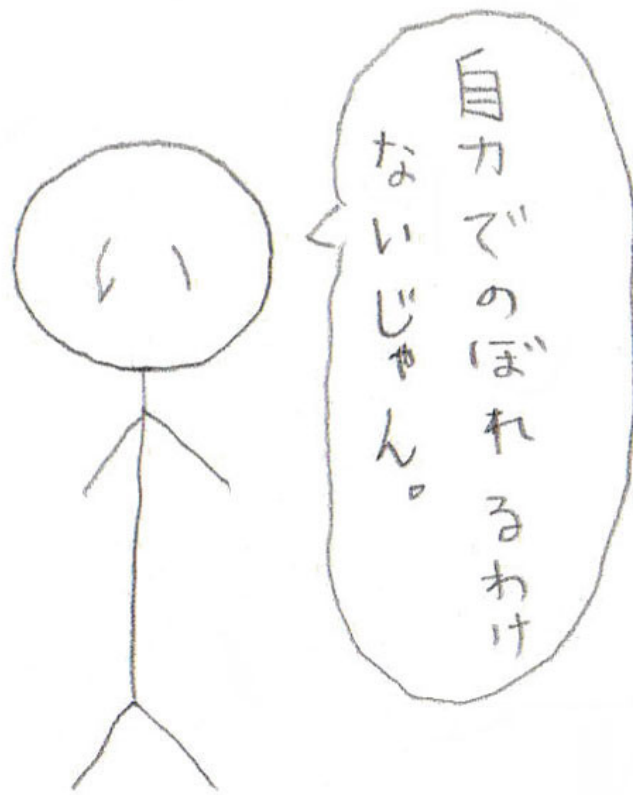 自力でのぼれるわけ
ないじゃん。